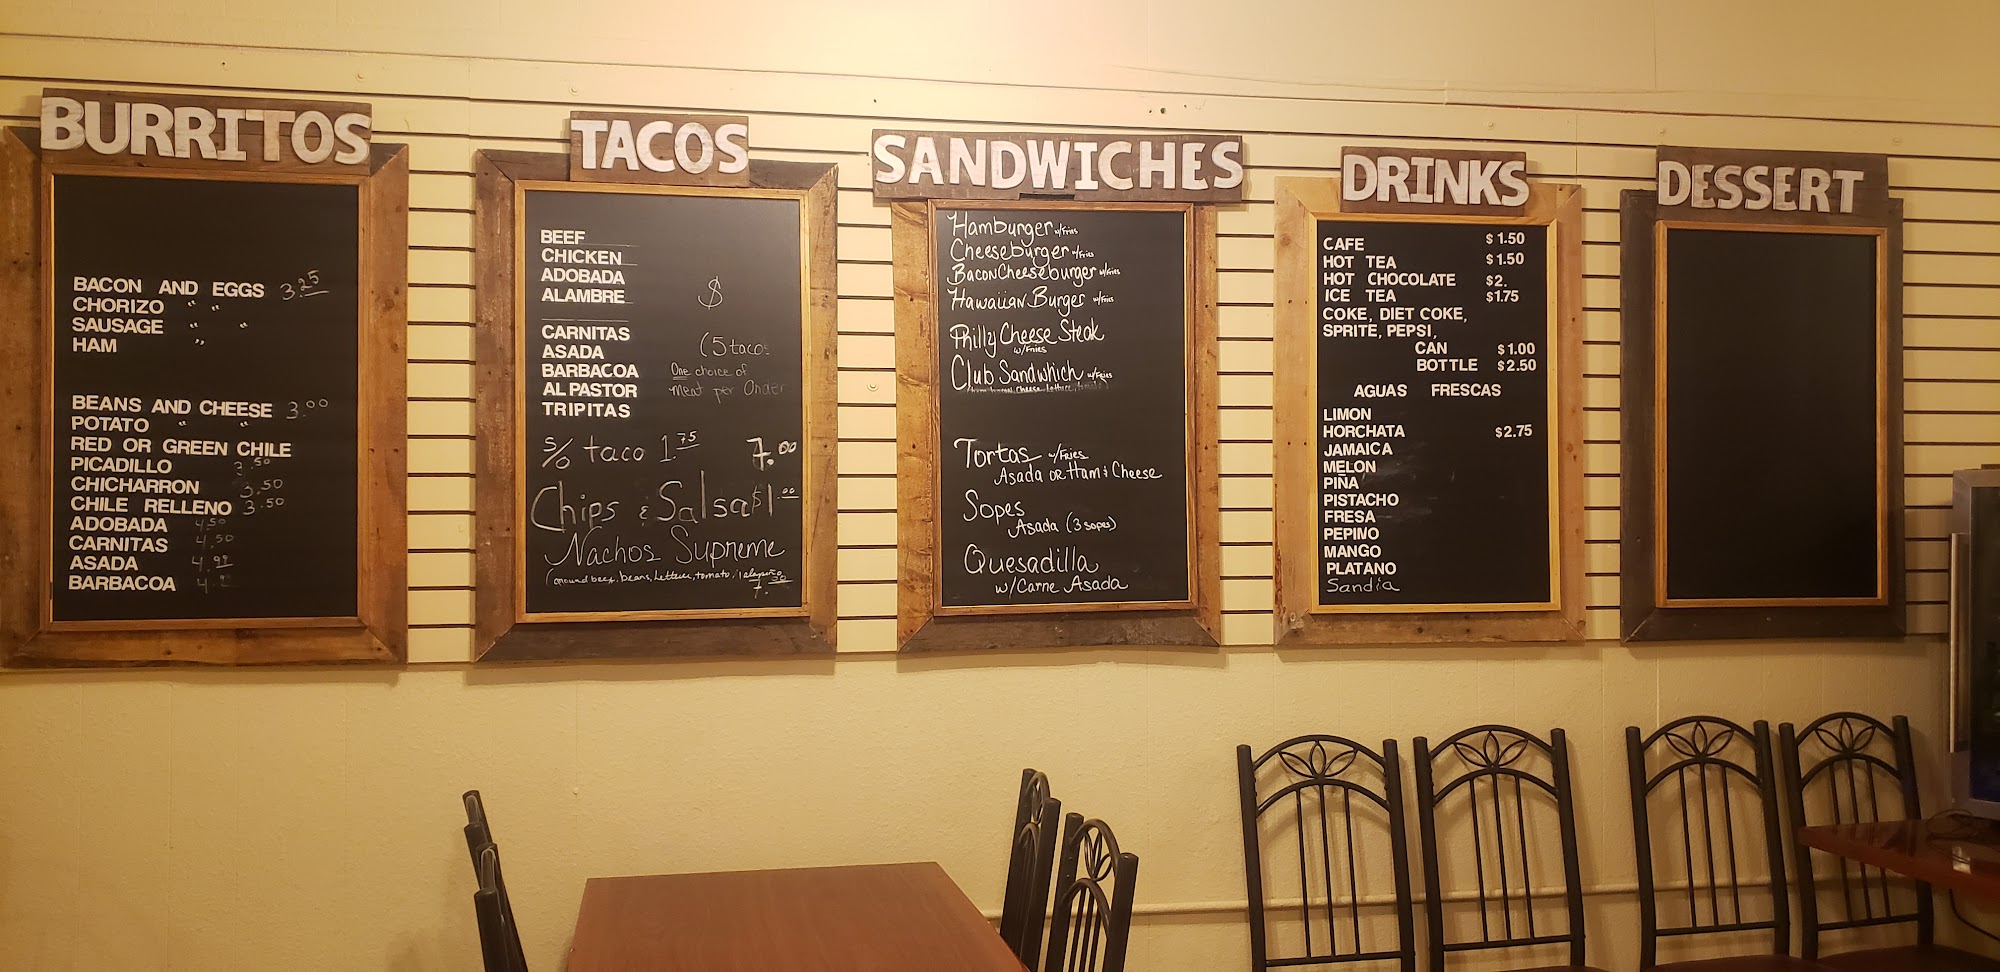 BURRITOS
BACON AND EGGS 3.25
CHORIZO " "
SAUSAGE " "
HAM "
BEANS AND CHEESE 3.00
POTATO " "
RED OR GREEN CHILE
PICADILLO 3.50
CHICHARRON 3.50
CHILE RELLENO 3.50
ADOBADA 4.50
CARNITAS 4.50
ASADA 4.99
BARBACOA
TACOS
BEEF
CHICKEN
ADOBADA
ALAMBRE $
CARNITAS
ASADA (5 tacos
BARBACOA One choice of
AL PASTOR meat per Order
TRIPITAS
S/O taco 1.75 7.00
Chips & Salsa $1.00
Nachos Supreme
(Ground beef, beans, Lettuce, tomato, Jalapeño
SANDWICHES
Hamburger w/Fries
Cheeseburger w/Fries
Bacon Cheeseburger w/Fries
Hawaiian Burger w/Fries
Philly Cheese Steak
w/Fries
Club Sandwhich w/Fries
Tortas w/Fries
Asada or Ham & Cheese
Sopes
Asada (3 sopes)
Quesadilla
w/Carne Asada
DRINKS
CAFE $1.50
HOT TEA $1.50
HOT CHOCOLATE $2.
ICE TEA $1.75
COKE, DIET COKE,
SPRITE, PEPSI,
CAN $1.00
BOTTLE $2.50
AGUAS FRESCAS
LIMON
HORCHATA $2.75
JAMAICA
MELON
PIÑA
PISTACHO
FRESA
PEPINO
MANGO
PLATANO
Sandia
DESSERT